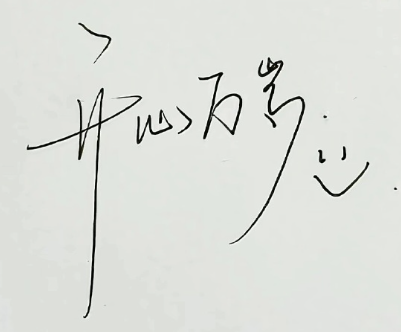 开心万岁